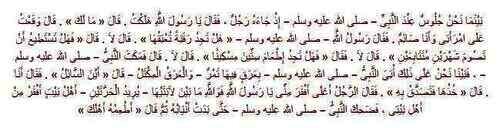 بَيْنَمَا نَحْنُ جُلُوسٌ عِنْدَ النَّبِيِّ - صلى الله عليه وسلم - إِذْ جَاءَهُ رَجُلٌ ، فَقَالَ يَا رَسُولَ اللَّهِ هَلَكْتُ . قَالَ « مَا لَكَ » . قَالَ وَقَعْتُ
عَلَى امْرَأَتِي وَأَنَا صَائِمٌ . فَقَالَ رَسُولُ اللَّهِ - صلى الله عليه وسلم - « هَلْ تَجِدُ رَقَبَةً تُعْتِقُهَا » . قَالَ لاَ . قَالَ « فَهَلْ تَسْتَطِيعُ أَنْ
تَصُومَ شَهْرَيْنِ مُتَتَابِعَيْنِ » . قَالَ لاَ . فَقَالَ « فَهَلْ تَجِدُ إِطْعَامَ سِتِّينَ مِسْكِينًا » . قَالَ لاَ . قَالَ فَمَكَثَ النَّبِيُّ - صلى الله عليه وسلم
- . فَبَيْنَا نَحْنُ عَلَى ذَلِكَ أُتِيَ النَّبِيُّ - صلى الله عليه وسلم - بِعَرَقٍ فِيهَا تَمْرٌ - وَالْعَرَقُ الْمِكْتَلُ - قَالَ « أَيْنَ السَّائِلُ » . فَقَالَ أَنَا
. قَالَ « خُذْهَا فَتَصَدَّقْ بِهِ » . فَقَالَ الرَّجُلُ أَعَلَى أَفْقَرَ مِنِّي يَا رَسُولَ اللَّهِ فَوَاللَّهِ مَا بَيْنَ لاَبَتَيْهَا - يُرِيدُ الْحَرَّتَيْنِ - أَهْلُ بَيْتٍ أَفْقَرُ مِنْ
أَهْلِ بَيْتِي . فَضَحِكَ النَّبِيُّ - صلى الله عليه وسلم - حَتَّى بَدَتْ أَنْيَابُهُ ثُمَّ قَالَ « أَطْعِمْهُ أَهْلَكَ »